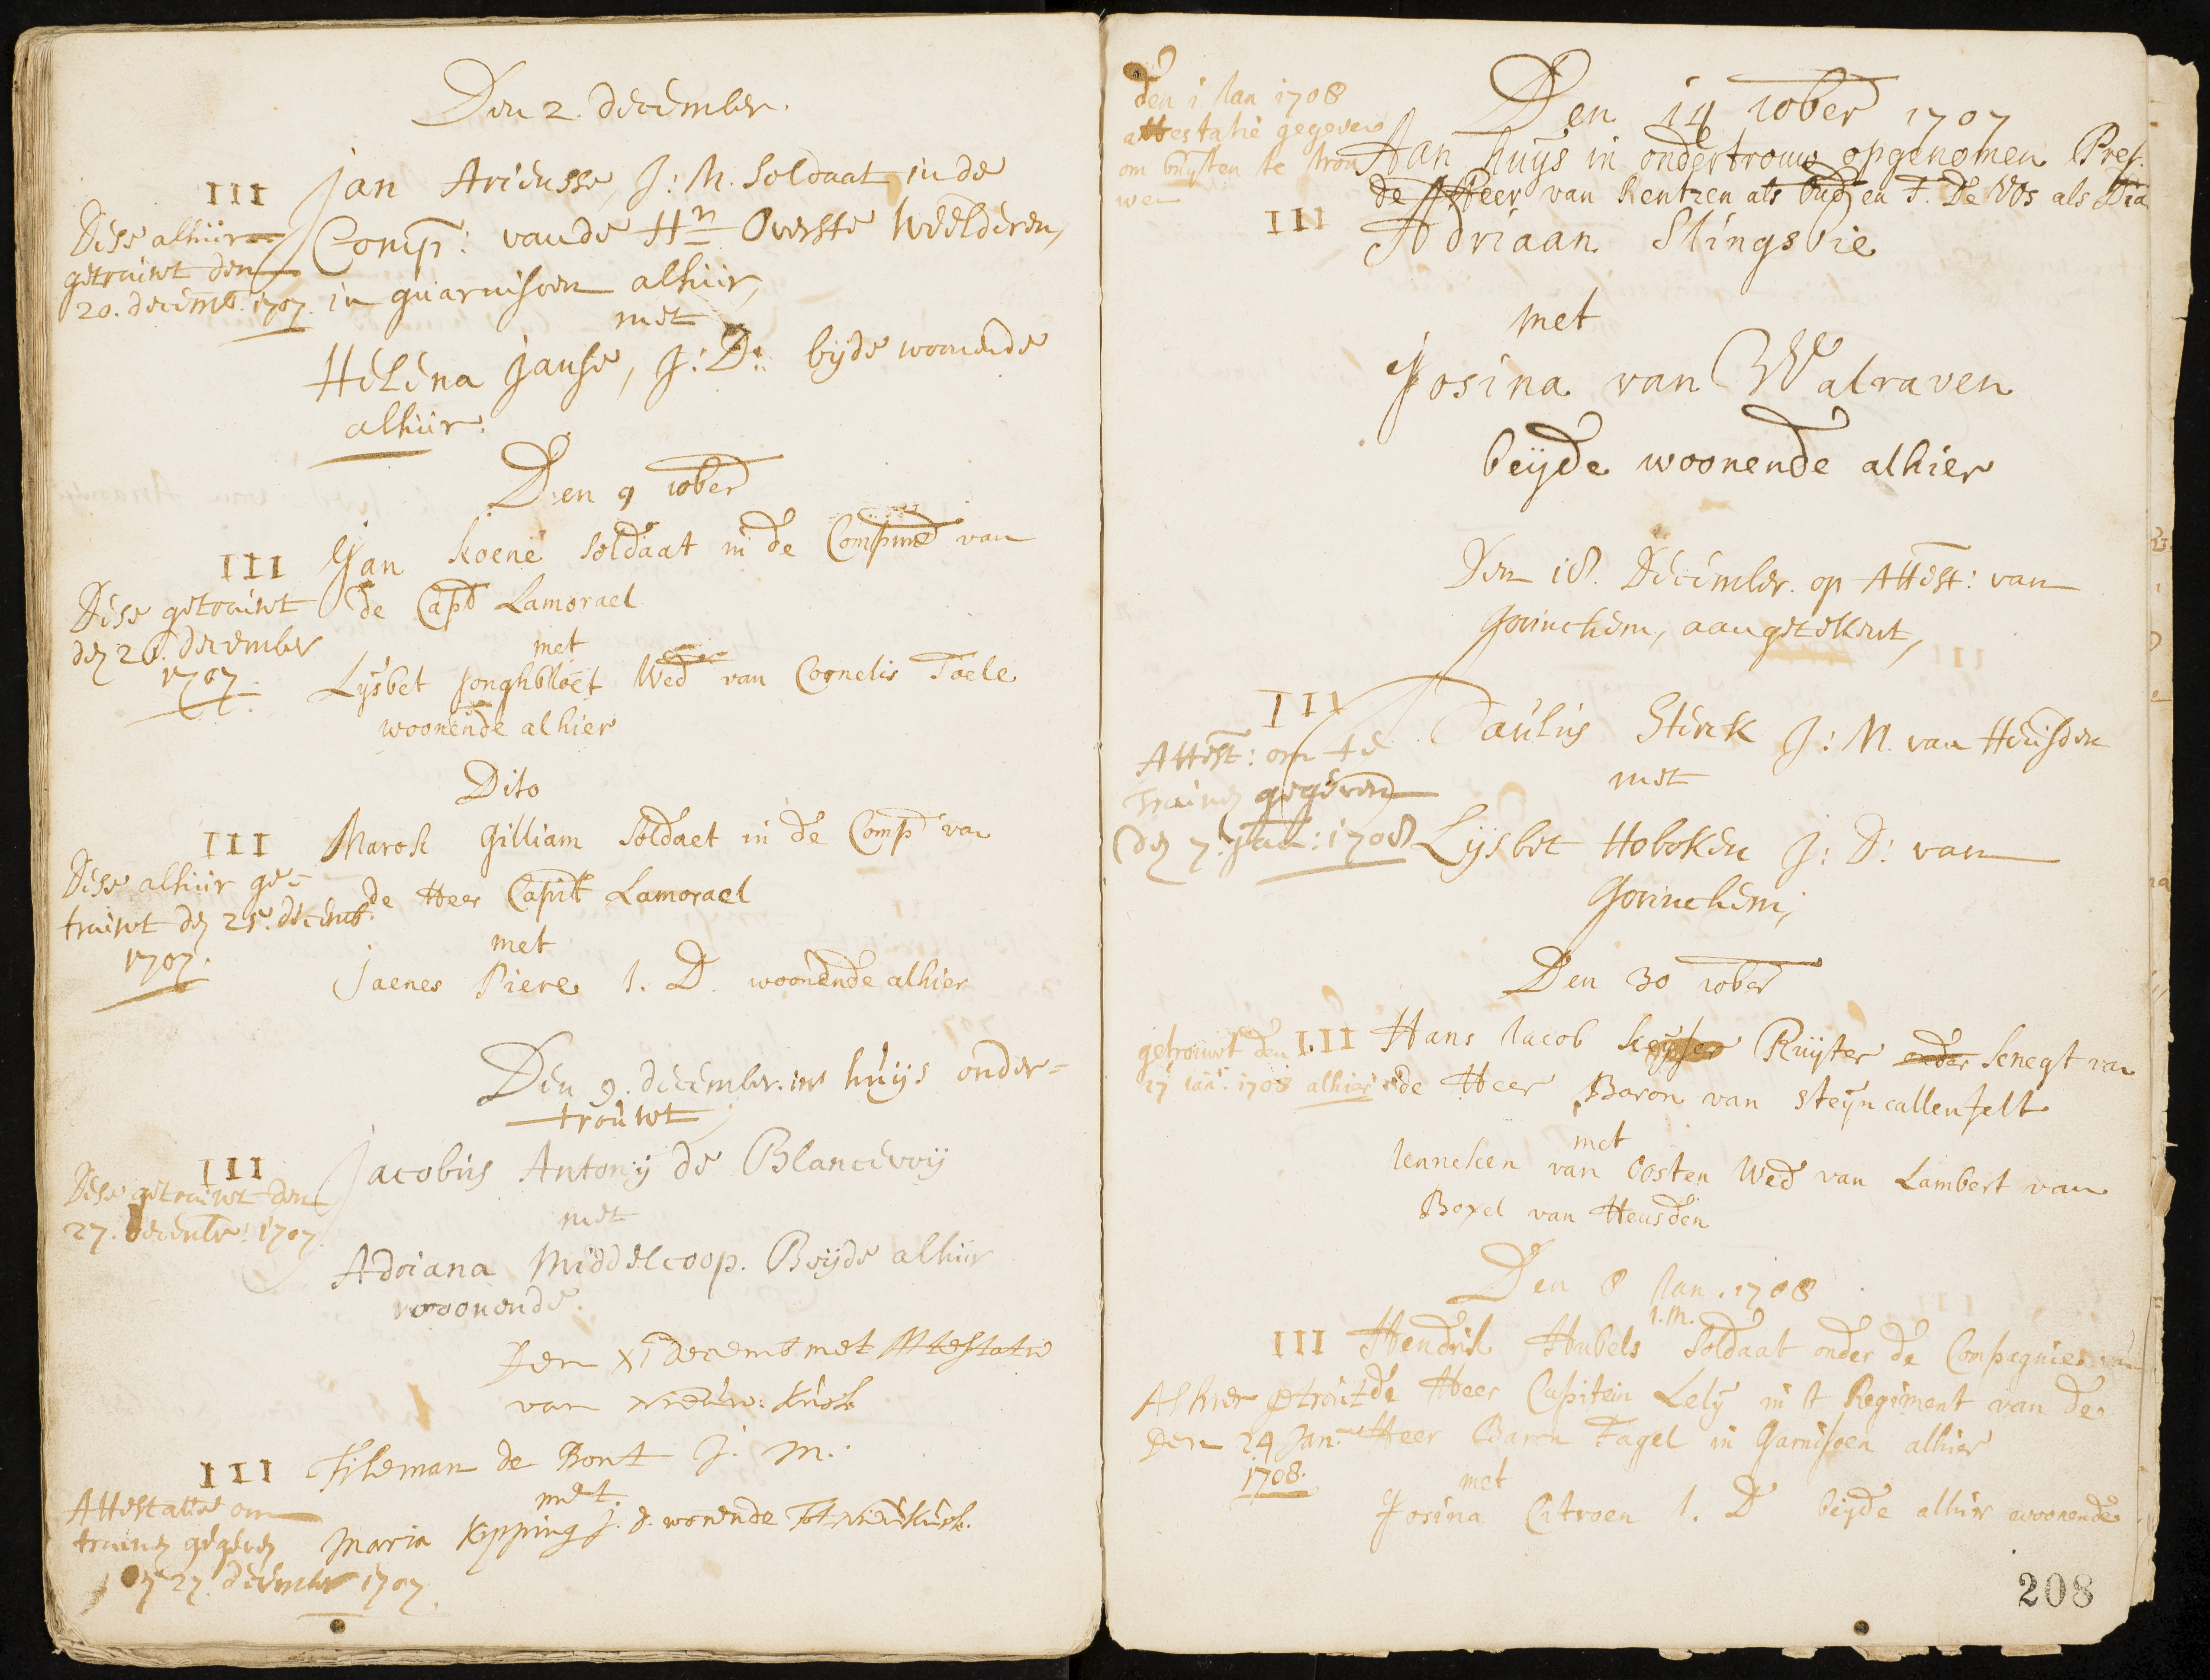 Den 2. december.
III
Jan Ariensse, J: M. soldaat in de
Comp: van de Hrn Overste Weelderen,
in guarnisoen alhier,
met
Helena Janse, J: D: bijde woonende
alhier.
Dese alhier
getrouwt den
20. decemb. 1707.
Den 9 10ber
III
Jan koene soldaat in de Compned van
de Capt Lamorael
met
Lysbet Jonghbloet Wed van Cornelis Toele
woonende alhier
Dese getrouwt
den 26. december
1707.
Dito
III
Marck Gilliam soldaet in de Comp van
de Heer Capit Lamorael
met
Jaenes Piere J. D. woonende alhier
Dese alhier ge=
trouwt den 25. decemb.
1707.
Den 9. december. in huijs onder=
trouwt
III
Jacobus Antonij de Blancevoij
met
Adriana Middelcoop. Beijde alhier
woonende.
Dese getrouwt den
27. decembr: 1707.
Den XI decemb met Attestatie
van nieuw: kuick
III
Tileman de Bont J. M.
met.
Maria Kipping J. d. wonende Tot nieukuick.
Attestatie om
trouwen gegeven
den 27. december 1707.
den 1. Jan 1708
attestatie gegeven
om buijten te trou
wen
Den 14 10ber 1707
Aan huijs in ondertrouw opgenomen Pres.
de Heer van Rentzen als Oudz en F. De Vos als Dia
III
Adriaan Slingsvie
met
Josina van Walraven
beijde woonende alhier
Den 18. December. op Attest: van
Gorinchem, aangetekent,
III
Paulus Sterck J: M. van Heusden
met
Lijsbet Hoboken J: D: van
Gorinchem;
Attest: om te
Trouwen gegeven
den 7. Jan: 1708
Den 30 10ber
III
Hans Jacob Keyser Ruijter onder knegt van
de Heer Baron van Steijn callenfelt
met
Jenneken van Oosten Wed van Lambert van
Boxel van Heusden
getrouwt den
17 Jan. 1708 alhier
Den 8 Jan. 1708
J. M.
III
Hendrik Hubels soldaat onder de Compagnie van
de Heer Capitein Lely in 't Regiment van de
Heer Baron Fagel in Garnisoen alhier
met
Josina Citroen J. D beijde alhier woonende
Alhier getrout
Den 24 Jan.
1708.
208